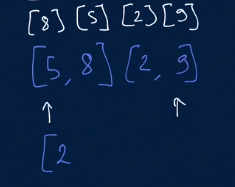 [8] [5] [2] [9]
[5, 8] [2, 9]
↑ ↑
[2